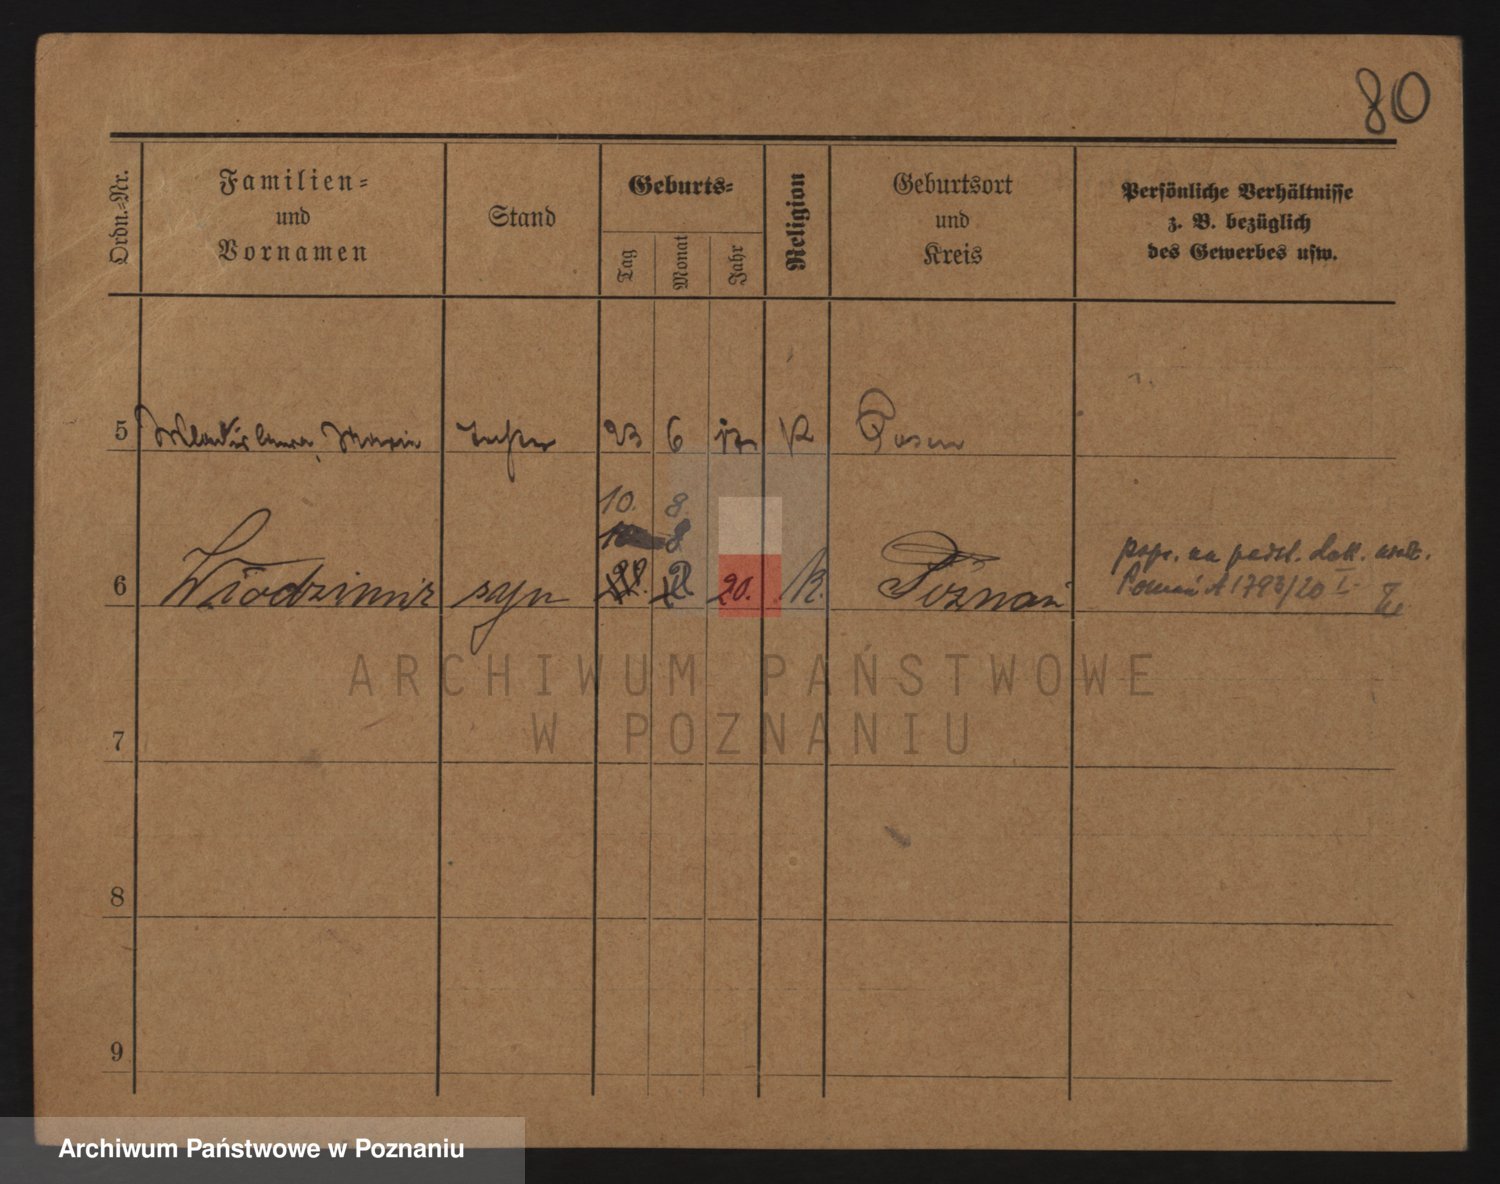 80
Ordn.-Nr.
Familien-
und
Vornamen
Stand
Geburts-
Tag
Monat
Jahr
Religion
Geburtsort
und
Kreis
Persönliche Verhältnisse
z. B. bezüglich
des Gewerbes usw.
5 Maria 23 6 K Posen
10. 8.
10 8
6 Włodzimir syn 20. K. Poznań popr. na podst.
A 1793/20 I
7
8
9
ARCHIWUM PAŃSTWOWE
W POZNANIU
Archiwum Państwowe w Poznaniu